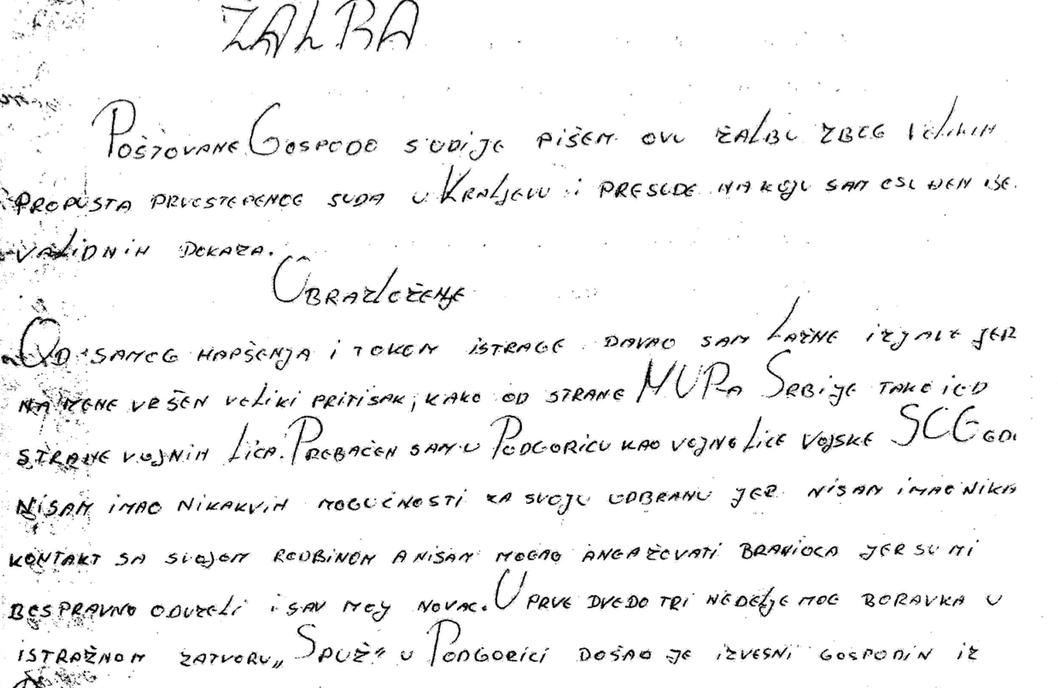 ŽALBA
POŠTOVANE GOSPODO SUDIJE PIŠEM OVU ŽALBU ZBOG VELIKIH
PROPUSTA PRVOSTEPENOG SUDA U KRALJEVU I PRESUDE NA KOJU SAM OSUĐEN
VALIDNIH DOKAZA.
OBRAZLOŽENJE
OD SAMOG HAPŠENJA I TOKOM ISTRAGE DAVAO SAM LAŽNE IZJAVE JER
NA MENE VRŠEN VELIKI PRITISAK, KAKO OD STRANE MUPA SRBIJE TAKO I OD
STRANE VOJNIH LICA. PREBAČEN SAM U PODGORICU KAO VOJNO LICE VOJSKE SCG
NISAM IMAO NIKAKVIH MOGUĆNOSTI ZA SVOJU ODBRANU JER NISAM IMAO NIKA
KONTAKT SA SVOJOM RODBINOM A NISAM MOGAO ANGAŽOVATI BRANIOCA JER SU MI
BESPRAVNO ODUZELI I SAV MOJ NOVAC. U PRVE DVE DO TRI NEDELJE MOG BORAVKA U
ISTRAŽNOM ZATVORU „SPUŽ" U PODGORICI DOŠAO JE IZVESNI GOSPODIN IZ